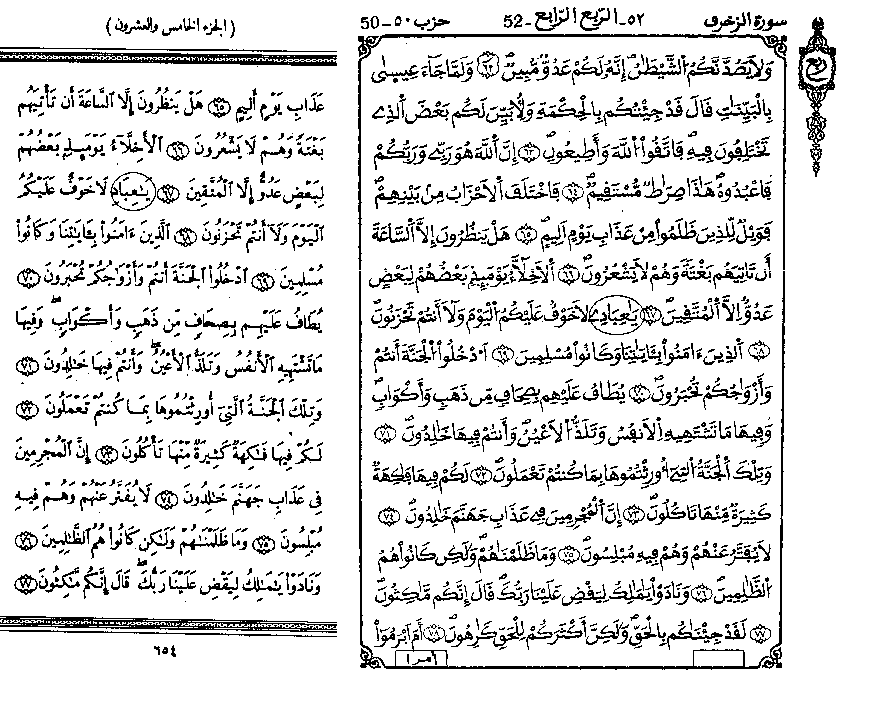 سورة الزخرف ٥٢- الربع الرابع -52 حزب ٥٠ - 50
ربع
وَلَا يَصُدَّنَّكُمُ الشَّيْطَٰنُ إِنَّهُ لَكُمْ عَدُوٌّ مُّبِينٌ ٦٢ وَلَمَّا جَاءَ عِيسَىٰ
بِالْبَيِّنَٰتِ قَالَ قَدْ جِئْتُكُم بِالْحِكْمَةِ وَلِأُبَيِّنَ لَكُم بَعْضَ الَّذِي
تَخْتَلِفُونَ فِيهِ فَاتَّقُوا اللَّهَ وَأَطِيعُونِ ٦٣ إِنَّ اللَّهَ هُوَ رَبِّي وَرَبُّكُمْ
فَاعْبُدُوهُ هَٰذَا صِرَاطٌ مُّسْتَقِيمٌ ٦٤ فَاخْتَلَفَ الْأَحْزَابُ مِنْ بَيْنِهِمْ
فَوَيْلٌ لِّلَّذِينَ ظَلَمُوا مِنْ عَذَابِ يَوْمٍ أَلِيمٍ ٦٥ هَلْ يَنظُرُونَ إِلَّا السَّاعَةَ
أَن تَأْتِيَهُم بَغْتَةً وَهُمْ لَا يَشْعُرُونَ ٦٦ الْأَخِلَّاءُ يَوْمَئِذٍ بَعْضُهُمْ لِبَعْضٍ
عَدُوٌّ إِلَّا الْمُتَّقِينَ ٦٧ يَٰعِبَادِي لَا خَوْفٌ عَلَيْكُمُ الْيَوْمَ وَلَا أَنتُمْ تَحْزَنُونَ
٦٨ الَّذِينَ ءَامَنُوا بِـَٔايَٰتِنَا وَكَانُوا مُسْلِمِينَ ٦٩ ادْخُلُوا الْجَنَّةَ أَنتُمْ
وَأَزْوَاجُكُمْ تُحْبَرُونَ ٧٠ يُطَافُ عَلَيْهِم بِصِحَافٍ مِّن ذَهَبٍ وَأَكْوَابٍ
وَفِيهَا مَا تَشْتَهِيهِ الْأَنفُسُ وَتَلَذُّ الْأَعْيُنُ وَأَنتُمْ فِيهَا خَٰلِدُونَ ٧١
وَتِلْكَ الْجَنَّةُ الَّتِي أُورِثْتُمُوهَا بِمَا كُنتُمْ تَعْمَلُونَ ٧٢ لَكُمْ فِيهَا فَٰكِهَةٌ
كَثِيرَةٌ مِّنْهَا تَاكُلُونَ ٧٣ إِنَّ الْمُجْرِمِينَ فِي عَذَابِ جَهَنَّمَ خَٰلِدُونَ ٧٤
لَا يُفَتَّرُ عَنْهُمْ وَهُمْ فِيهِ مُبْلِسُونَ ٧٥ وَمَا ظَلَمْنَٰهُمْ وَلَٰكِن كَانُوا هُمُ
الظَّٰلِمِينَ ٧٦ وَنَادَوْا يَٰمَٰلِكُ لِيَقْضِ عَلَيْنَا رَبُّكَ قَالَ إِنَّكُم مَّٰكِثُونَ
٧٧ لَقَدْ جِئْنَٰكُم بِالْحَقِّ وَلَٰكِنَّ أَكْثَرَكُمْ لِلْحَقِّ كَٰرِهُونَ ٧٨ أَمْ أَبْرَمُوا
أمرا
( الجزء الخامس والعشرون )
عَذَابِ يَوْمٍ أَلِيمٍ ٦٥ هَلْ يَنظُرُونَ إِلَّا السَّاعَةَ أَن تَأْتِيَهُم
بَغْتَةً وَهُمْ لَا يَشْعُرُونَ ٦٦ الْأَخِلَّاءُ يَوْمَئِذٍ بَعْضُهُمْ
لِبَعْضٍ عَدُوٌّ إِلَّا الْمُتَّقِينَ ٦٧ يَٰعِبَادِ لَا خَوْفٌ عَلَيْكُمُ
الْيَوْمَ وَلَا أَنتُمْ تَحْزَنُونَ ٦٨ الَّذِينَ ءَامَنُوا بِـَٔايَٰتِنَا وَكَانُوا
مُسْلِمِينَ ٦٩ ادْخُلُوا الْجَنَّةَ أَنتُمْ وَأَزْوَاجُكُمْ تُحْبَرُونَ ٧٠
يُطَافُ عَلَيْهِم بِصِحَافٍ مِّن ذَهَبٍ وَأَكْوَابٍ وَفِيهَا
مَا تَشْتَهِيهِ الْأَنفُسُ وَتَلَذُّ الْأَعْيُنُ وَأَنتُمْ فِيهَا خَٰلِدُونَ ٧١
وَتِلْكَ الْجَنَّةُ الَّتِي أُورِثْتُمُوهَا بِمَا كُنتُمْ تَعْمَلُونَ ٧٢
لَكُمْ فِيهَا فَٰكِهَةٌ كَثِيرَةٌ مِّنْهَا تَأْكُلُونَ ٧٣ إِنَّ الْمُجْرِمِينَ
فِي عَذَابِ جَهَنَّمَ خَٰلِدُونَ ٧٤ لَا يُفَتَّرُ عَنْهُمْ وَهُمْ فِيهِ
مُبْلِسُونَ ٧٥ وَمَا ظَلَمْنَٰهُمْ وَلَٰكِن كَانُوا هُمُ الظَّٰلِمِينَ ٧٦
وَنَادَوْا يَٰمَٰلِكُ لِيَقْضِ عَلَيْنَا رَبُّكَ قَالَ إِنَّكُم مَّٰكِثُونَ ٧٧
٦٥٤